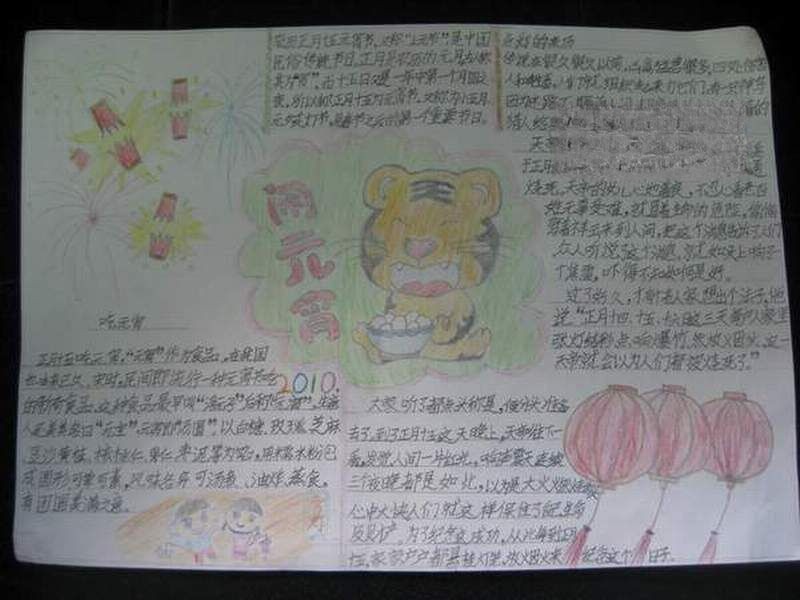 农历正月十五元宵节,又称"上元节",是中国
民俗传统节日。正月是农历的元月,古人称
其为"宵",而十五日又是一年中第一个月圆之
夜,所以称正月十五为元宵节。又称为小正月、
元夕或灯节,是春节之后的第一个重要节日。
点灯的来历
传说在很久很久以前,凶禽猛兽很多,四处伤害
人和牲畜,人们就组织起来
因为迷路
猎人给
天帝
于正月
烧死,天帝的女儿心地善良,不忍心看百
姓无辜受难,就冒着生命的危险,偷偷
驾着祥云来到人间,把这个消息告诉了人们
众人听说了这个消息,就如头上响了一
个焦雷,吓得不知如何是好。
过了好久,才有个老人家想出个法子,他
说:"正月十四、十五、十六日这三天,每户人家里
张灯结彩、点响爆竹、燃放烟火。这一
来,天帝就会以为人们都被烧死了。"
闹元宵
吃元宵
正月十五吃元宵,"元宵"作为食品,在我国
也由来已久。宋时,民间即流行一种元宵节吃
的新奇食品。这种食品,最早叫"浮元子"后称"元宵",生意
人还美其名曰"元宝"。元宵即"汤圆",以白糖、玫瑰、芝麻、
豆沙、黄桂、核桃仁、果仁、枣泥等为馅,用糯米粉包
成圆形,可荤可素,风味各异。可汤煮、油炸、蒸食,
有团圆美满之意。
2010.
大家听了都点头称是,便分头准备
去了。到了正月十五这天晚上,天帝往下一
看,发觉人间一片红光,响声震天,连续
三个夜晚都是如此,以为是大火燃烧的火焰,
心中大快。人们就这样保住了自己的生命
及财产。为了纪念这次成功,从此每到正月
十五,家家户户都悬挂灯笼,放烟火来纪念这个日子。